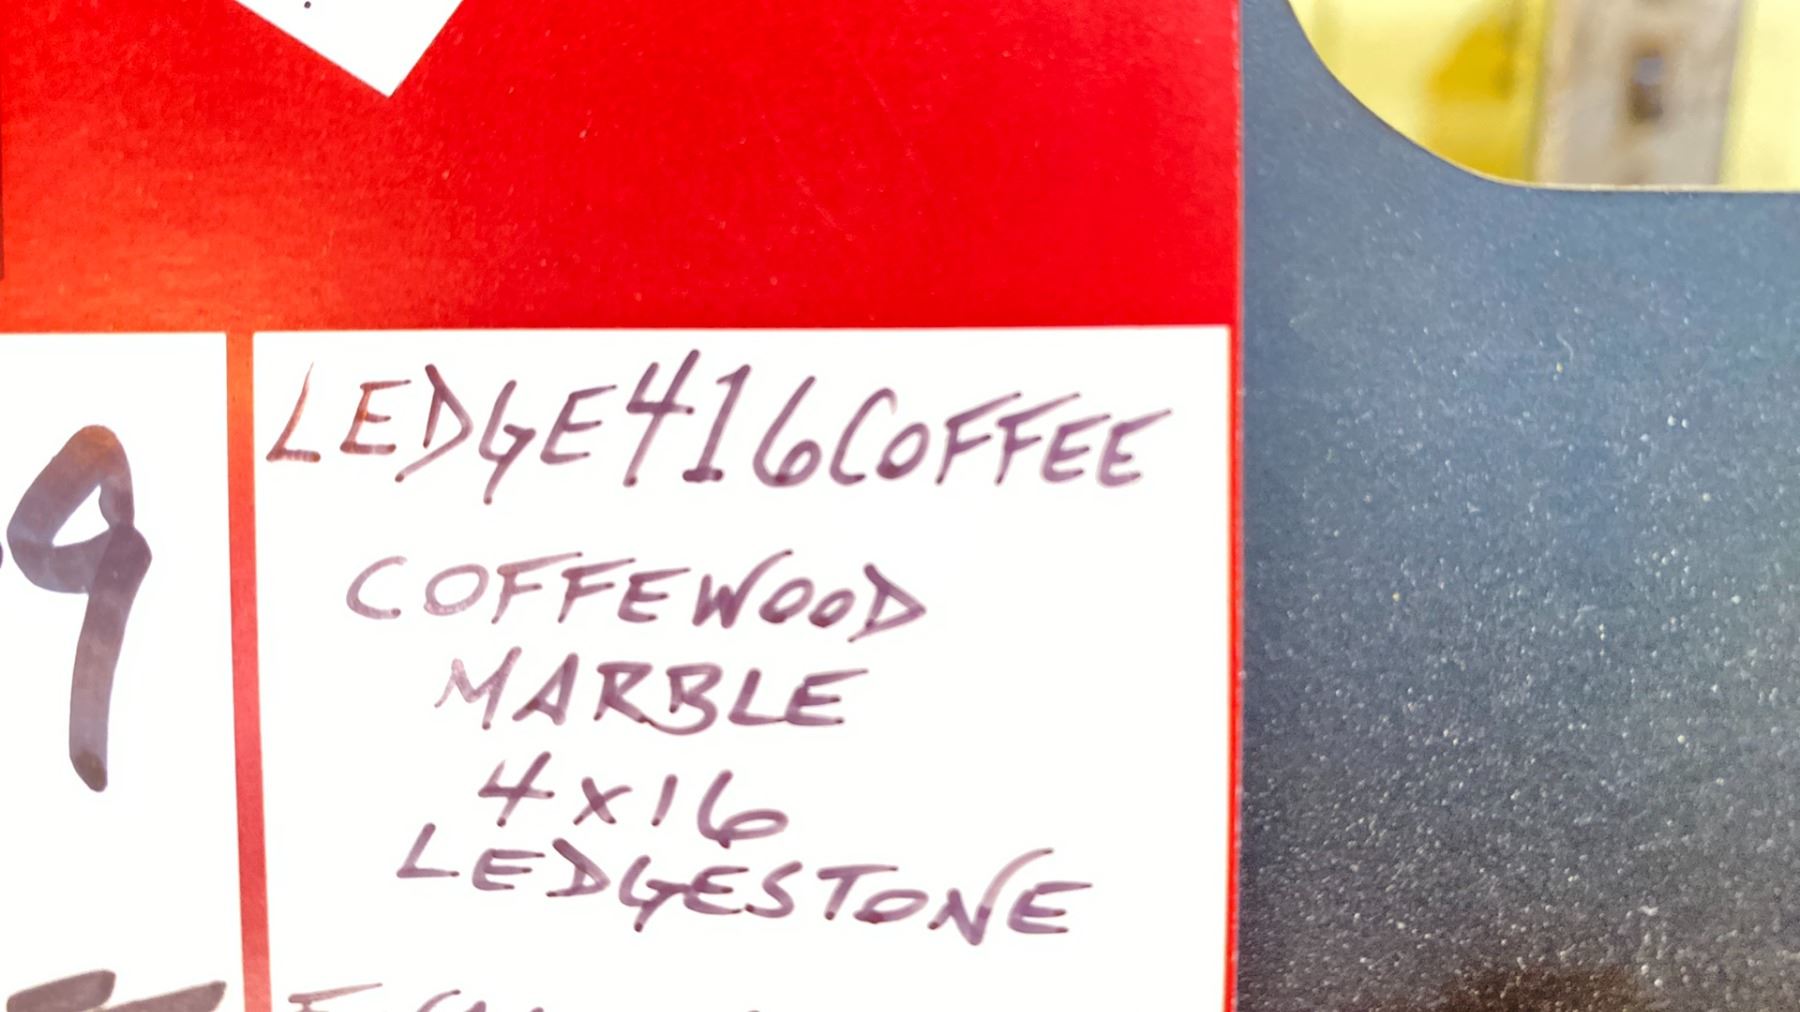 LEDGE416COFFEE
9
COFFEWOOD
MARBLE
4x16
LEDGESTONE